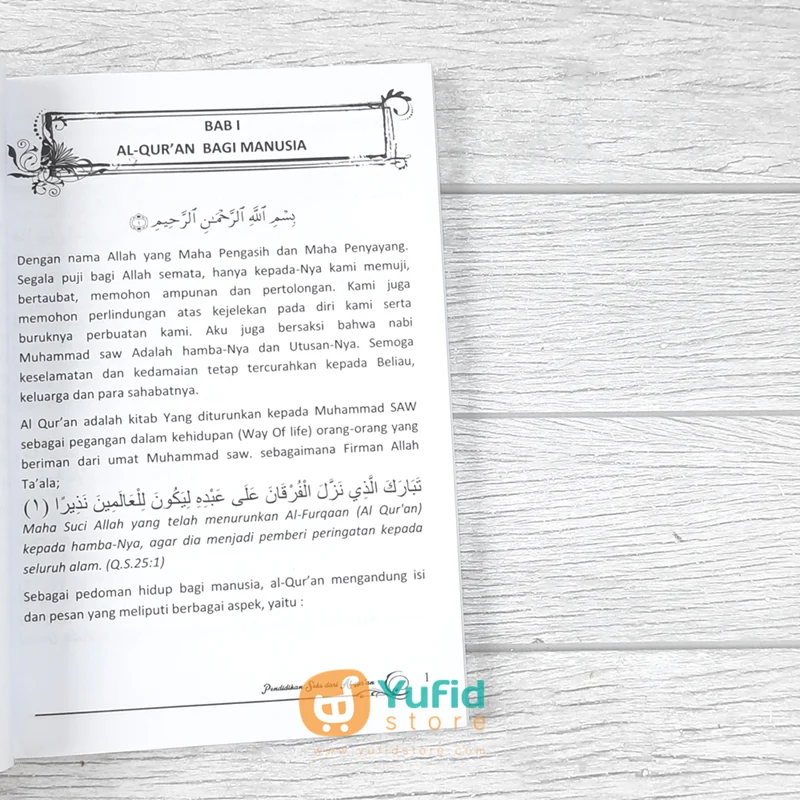 BAB I
AL-QUR'AN BAGI MANUSIA
بِسْمِ ٱللَّهِ ٱلرَّحْمَٰنِ ٱلرَّحِيمِ ۝١
Dengan nama Allah yang Maha Pengasih dan Maha Penyayang.
Segala puji bagi Allah semata, hanya kepada-Nya kami memuji,
bertaubat, memohon ampunan dan pertolongan. Kami juga
memohon perlindungan atas kejelekan pada diri kami serta
buruknya perbuatan kami. Aku juga bersaksi bahwa nabi
Muhammad saw Adalah hamba-Nya dan Utusan-Nya. Semoga
keselamatan dan kedamaian tetap tercurahkan kepada Beliau,
keluarga dan para sahabatnya.
Al Qur'an adalah kitab Yang diturunkan kepada Muhammad SAW
sebagai pegangan dalam kehidupan (Way Of life) orang-orang yang
beriman dari umat Muhammad saw. sebagaimana Firman Allah
Ta'ala;
تَبَارَكَ الَّذِي نَزَّلَ الْفُرْقَانَ عَلَى عَبْدِهِ لِيَكُونَ لِلْعَالَمِينَ نَذِيرًا (١)
Maha Suci Allah yang telah menurunkan Al-Furqaan (Al Qur'an)
kepada hamba-Nya, agar dia menjadi pemberi peringatan kepada
seluruh alam. (Q.S.25:1)
Sebagai pedoman hidup bagi manusia, al-Qur'an mengandung isi
dan pesan yang meliputi berbagai aspek, yaitu :
Pendidikan Seks dari 1
Yufid
store
www.yufidstore.com